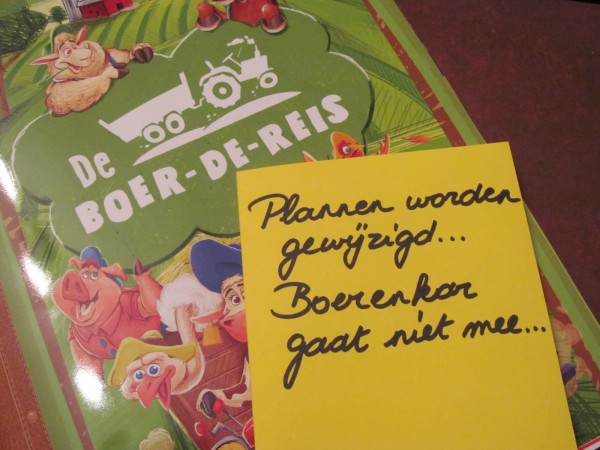 De
BOER-DE-REIS
Plannen worden
gewijzigd...
Boerenkar
gaat niet mee...